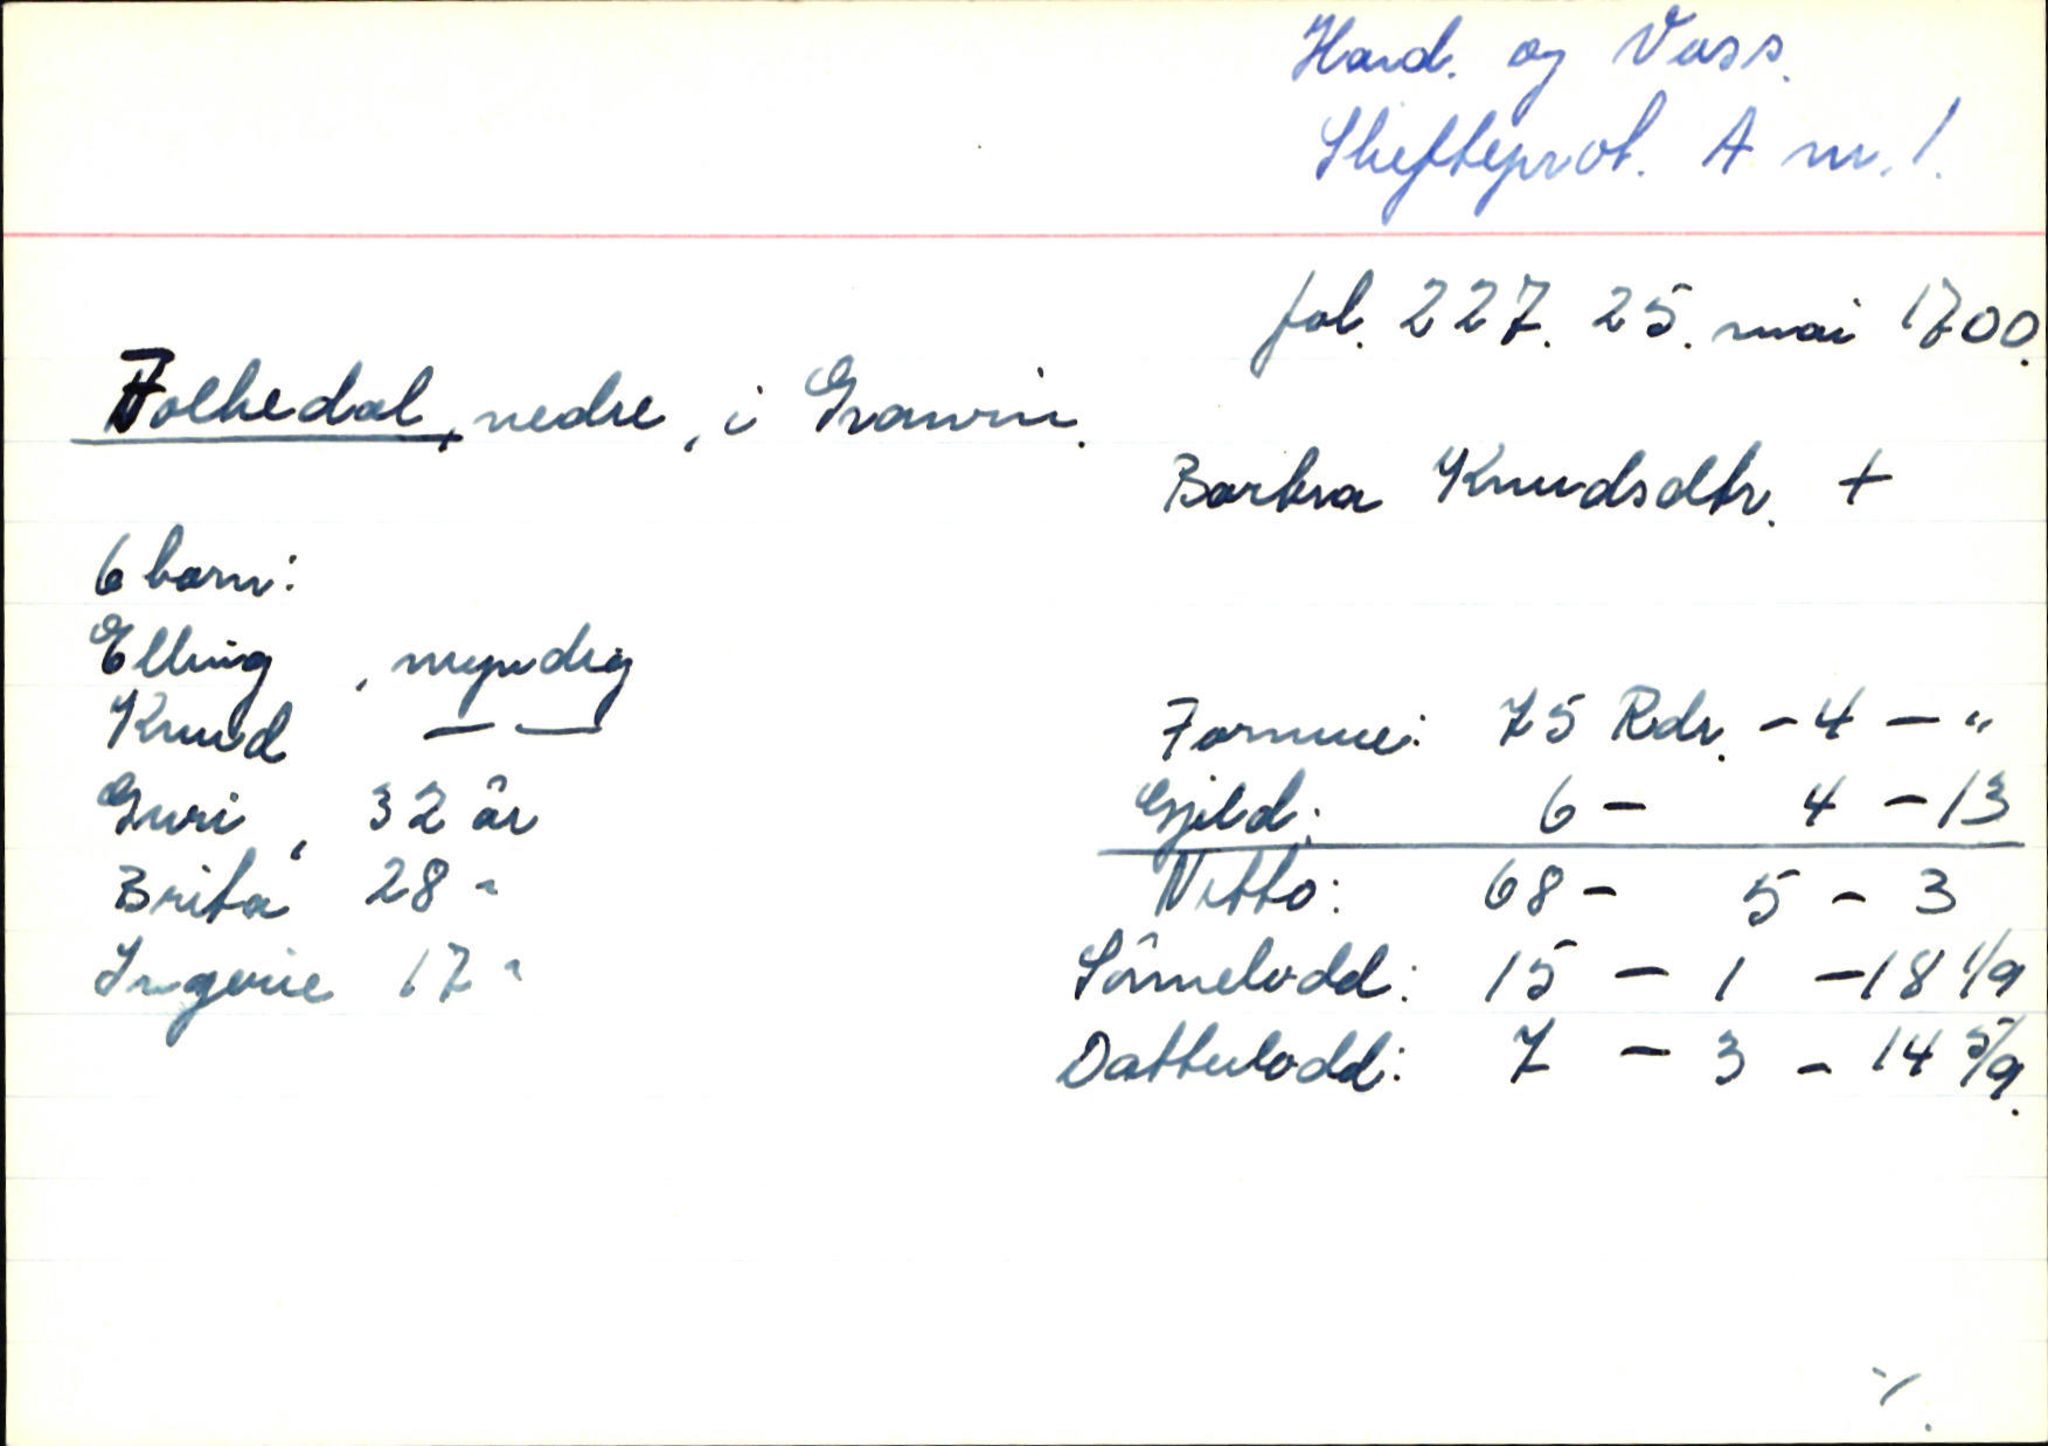 Hard. og Voss.
Skifteprot. A nr. 1.
fol. 227. 25. mai 1700.
Folkedal, nedre, i Granvin.
Barbra Knudsdtr. +
6 born:
Elling , myndig
Knud — —
Guri , 32 år
Brita 28 "
Ingerie 17 "
Formue: 75 Rdr. - 4 - "
Gjeld: 6 - 4 - 13
Netto: 68 - 5 - 3
Sönnelodd: 15 - 1 - 18 1/9
Datterlodd: 7 - 3 - 14 5/9.